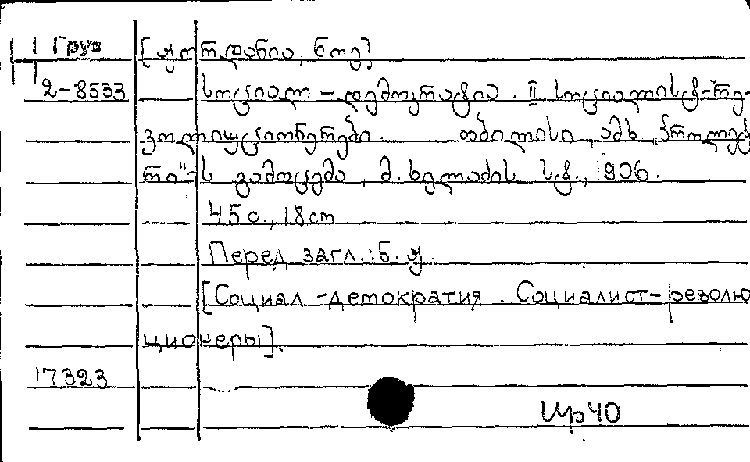 Груз [ჟორდანია, ნოე]
2-8533 სოციალ-დემოკრატია. II სოციალისტ-რე-
ვოლიუციონერები. თბილისი, ამხ. „პროლეტ
რი"-ს გამოცემა, მ. ხელაძის ს.ტ., 906.
45 с., 18 cm
Перед загл.: ნ. ჟ.
[Социал-демократия. Социалист-револю
ционеры].
17323
Ир40